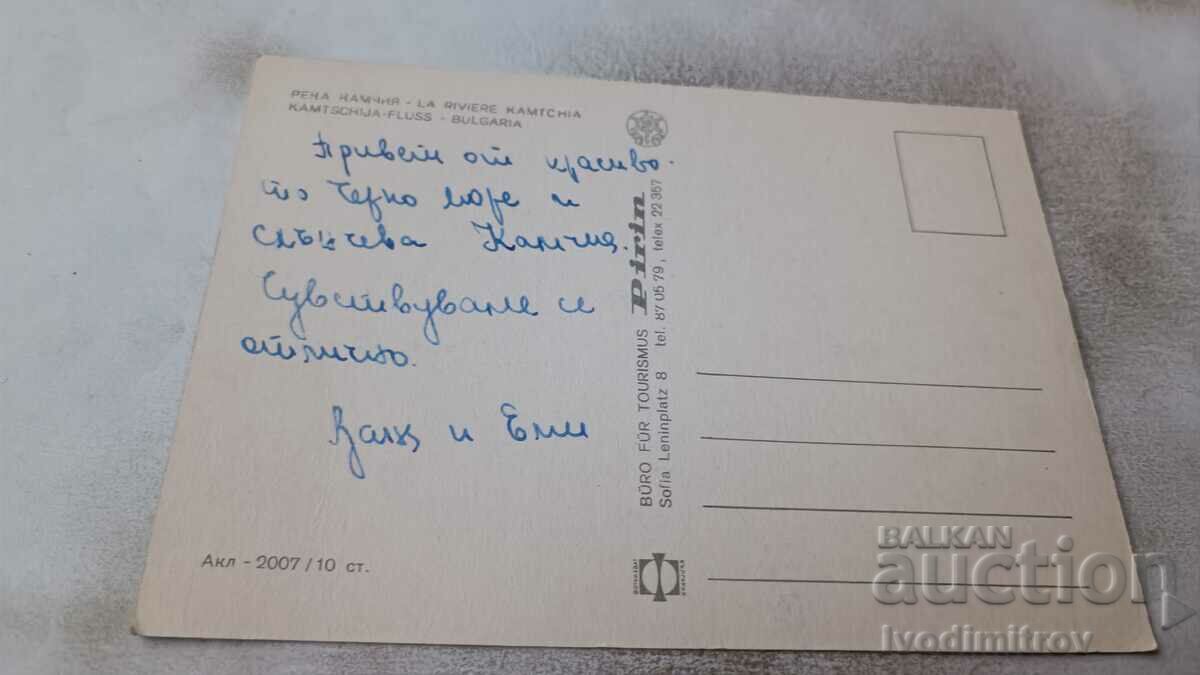 РЕКА КАМЧИЯ - LA RIVIERE KAMTCHIA
KAMTSCHIJA-FLUSS - BULGARIA
Привет от красиво-
то Черно море и
слънчева Камчия.
Чувствуваме се
отлично.
и Еми
Акл - 2007/10 ст.
BÜRO FÜR TOURISMUS Pirin
Sofia Leninplatz 8 tel. 87 05 79, telex 22 357
BALKAN
auction
Ivodimitrov